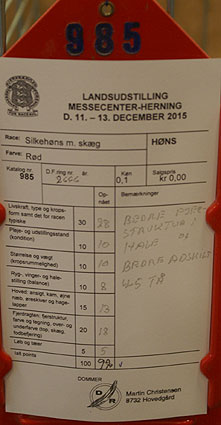 985
LANDSUDSTILLING
MESSECENTER-HERNING
D. 11. - 13. DECEMBER 2015
Race: Silkehøns m. skæg HØNS
Farve: Rød
Katalog nr. D.F ring nr. Køn Salgspris
985 2666 0,1 kr 0,00
Op-nået Bemærkninger
Livskraft, type og krops-
form samt det for racen
typiske 30
Pleje- og udstillingsstand
(kondition) 10 10
Størrelse og vægt
(kropsrummelighed) 10 10
Ryg-, vinger- og hale-
stilling (balance) 10 8
Hoved: ansigt, kam, øjne
næb, øreskiver og hage-
lapper 15 13
Fjerdragten; fjerstruktur,
farve og tegning, over- og
underfarve (top, skæg,
fodbefjering) 20 18
Løb og tæer 5 5
Ialt points 100
BEDRE FJER
STRUKTUR I
HALE
BEDRE ADSKILT
4-5 TÅ
DOMMER
D R
Martin Christensen
8732 Hovedgård